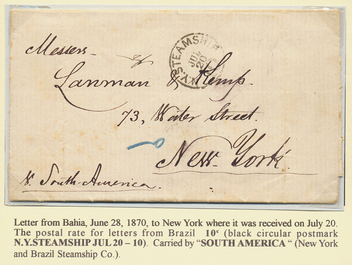 Messrs.
N.Y. STEAMSHIP
JUL
20
Lanman & Kemp.
73, Water Street.
New York
p. South America.
Letter from Bahia, June 28, 1870, to New York where it was received on July 20.
The postal rate for letters from Brazil 10ᶜ (black circular postmark
N.Y.STEAMSHIP JUL 20 – 10). Carried by "SOUTH AMERICA " (New York
and Brazil Steamship Co.).